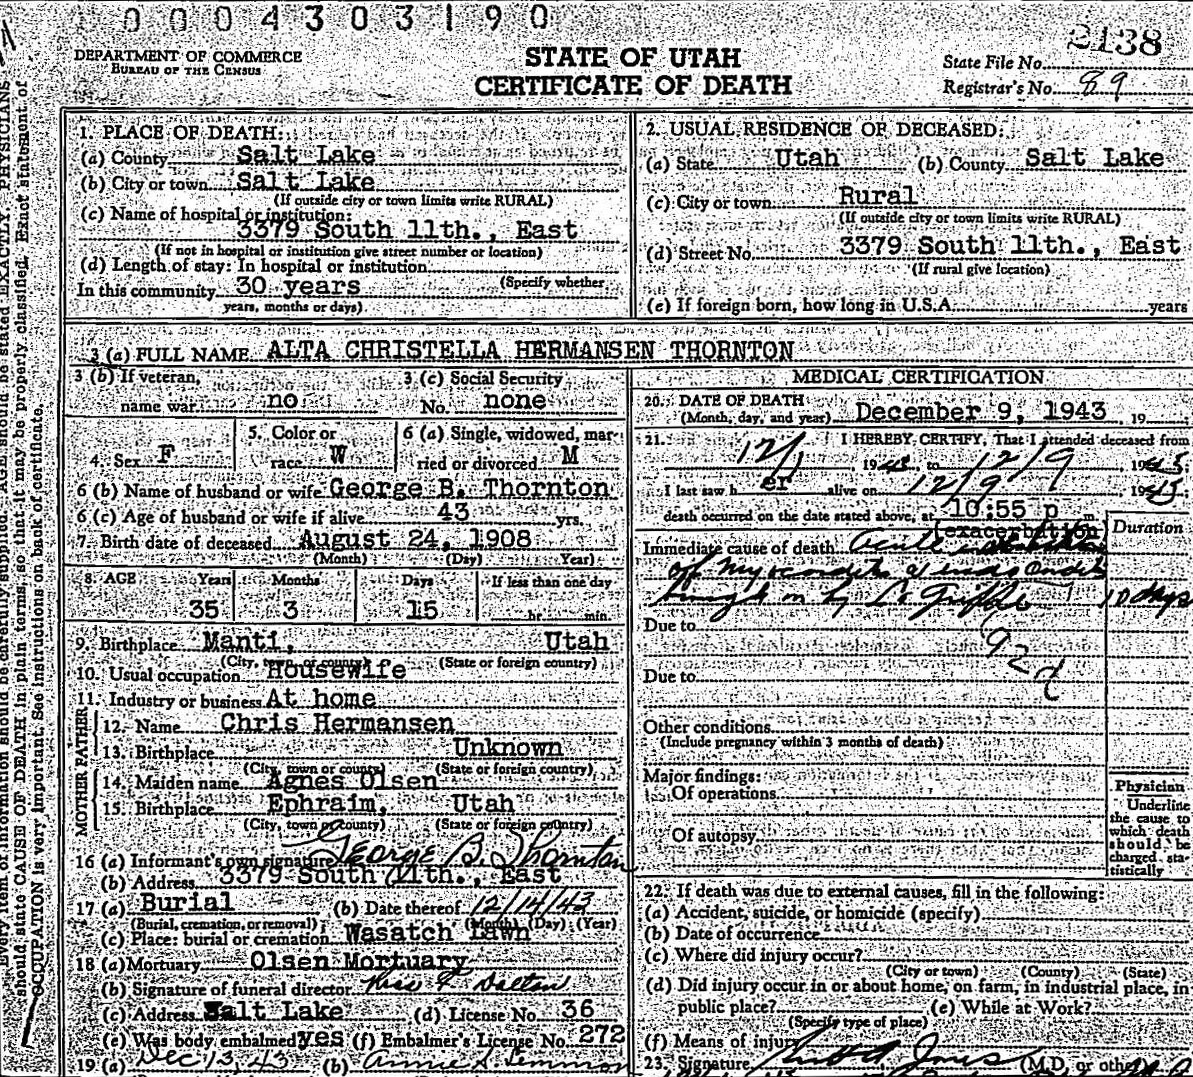 0004303190
DEPARTMENT OF COMMERCE
BUREAU OF THE CENSUS
STATE OF UTAH
CERTIFICATE OF DEATH
State File No. 2138
Registrar's No. 89
1. PLACE OF DEATH:
(a) County Salt Lake
(b) City or town Salt Lake
(If outside city or town limits write RURAL)
(c) Name of hospital or institution:
3379 South 11th., East
(If not in hospital or institution give street number or location)
(d) Length of stay: In hospital or institution
(Specify whether
In this community 30 years
years, months or days)
2. USUAL RESIDENCE OF DECEASED:
(a) State Utah (b) County Salt Lake
(c) City or town Rural
(If outside city or town limits write RURAL)
(d) Street No. 3379 South 11th., East
(If rural give location)
(e) If foreign born, how long in U.S.A. years
3 (a) FULL NAME ALTA CHRISTELLA HERMANSEN THORNTON
3 (b) If veteran, name war no
3 (c) Social Security No. none
4. Sex F
5. Color or race W
6 (a) Single, widowed, married or divorced M
6 (b) Name of husband or wife George B. Thornton
6 (c) Age of husband or wife if alive 43 yrs.
7. Birth date of deceased August 24, 1908
(Month) (Day) Year)
8. AGE Years Months Days If less than one day
35 3 15 hr. min.
9. Birthplace Manti, Utah
(City, town, or county) (State or foreign country)
10. Usual occupation Housewife
11. Industry or business At home
FATHER
12. Name Chris Hermansen
13. Birthplace Unknown
(City, town or county) (State or foreign country)
MOTHER
14. Maiden name Agnes Olsen
15. Birthplace Ephraim, Utah
(City, town or county) (State or foreign country)
16 (a) Informant's own signature George B. Thornton
(b) Address 3379 South 11th., East
17 (a) Burial (b) Date thereof 12/14/43
(Burial, cremation, or removal) (Month) (Day) (Year)
(c) Place: burial or cremation Wasatch Lawn
18 (a) Mortuary Olsen Mortuary
(b) Signature of funeral director Dalton
(c) Address Salt Lake (d) License No. 36
(e) Was body embalmed yes (f) Embalmer's License No. 272
19 (a) Dec 13 43 (b) Annie S. Lemmon
MEDICAL CERTIFICATION
20. DATE OF DEATH
(Month, day, and year) December 9, 1943 19
21. I HEREBY CERTIFY, That I attended deceased from
12/1, 1943, to 12/9, 1943.
I last saw her alive on 12/9, 1943.
death occurred on the date stated above, at 10:55 p m.
(exacerbation) Duration
Immediate cause of death Acute
of
brought on by La Grippe 10 days
Due to
92d
Due to
Other conditions
(Include pregnancy within 3 months of death)
Major findings:
Of operations
Of autopsy
Physician
Underline
the cause to
which death
should be
charged sta-
tistically
22. If death was due to external causes, fill in the following:
(a) Accident, suicide, or homicide (specify)
(b) Date of occurrence
(c) Where did injury occur?
(City or town) (County) (State)
(d) Did injury occur in or about home, on farm, in industrial place, in
public place? (e) While at Work?
(Specify type of place)
(f) Means of injury
23. Signature Jones (M.D. or other) M D
Every item of information should be carefully supplied. AGE should be stated EXACTLY. PHYSICIANS
should state CAUSE OF DEATH in plain terms, so that it may be properly classified. Exact statement of
OCCUPATION is very important. See instructions on back of certificate.